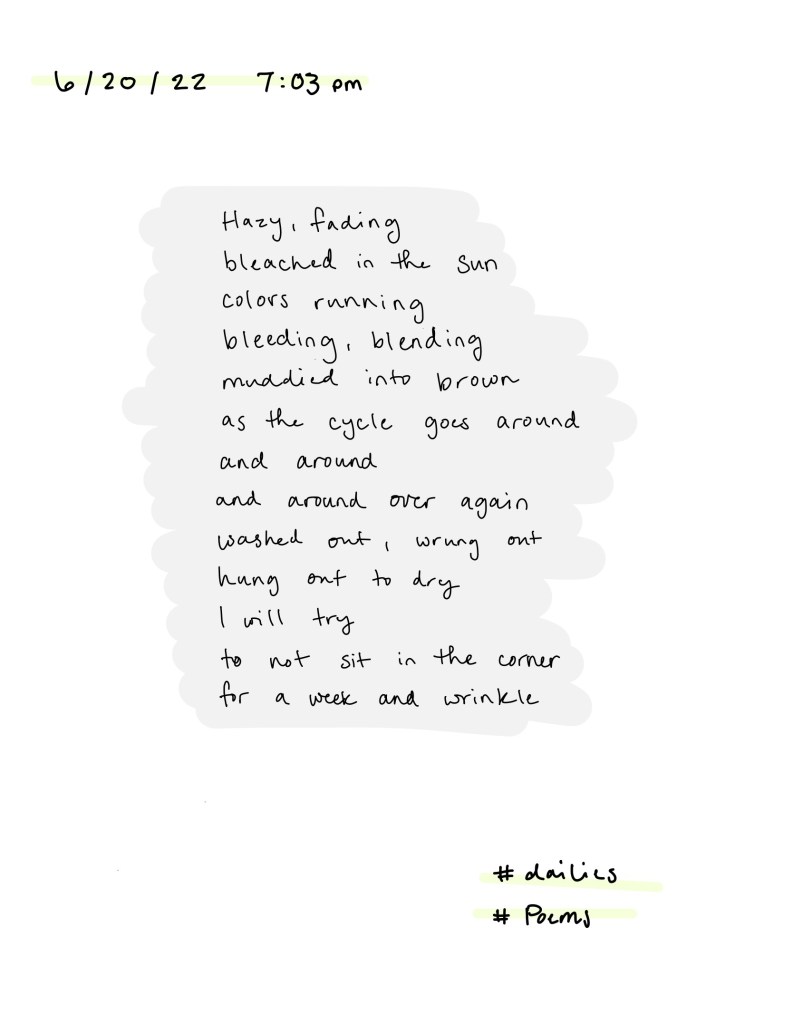 6/20/22 7:03 pm
Hazy, fading
bleached in the sun
colors running
bleeding, blending
muddied into brown
as the cycle goes around
and around
and around over again
washed out, wrung out
hung out to dry
I will try
to not sit in the corner
for a week and wrinkle
# dailies
# Poems